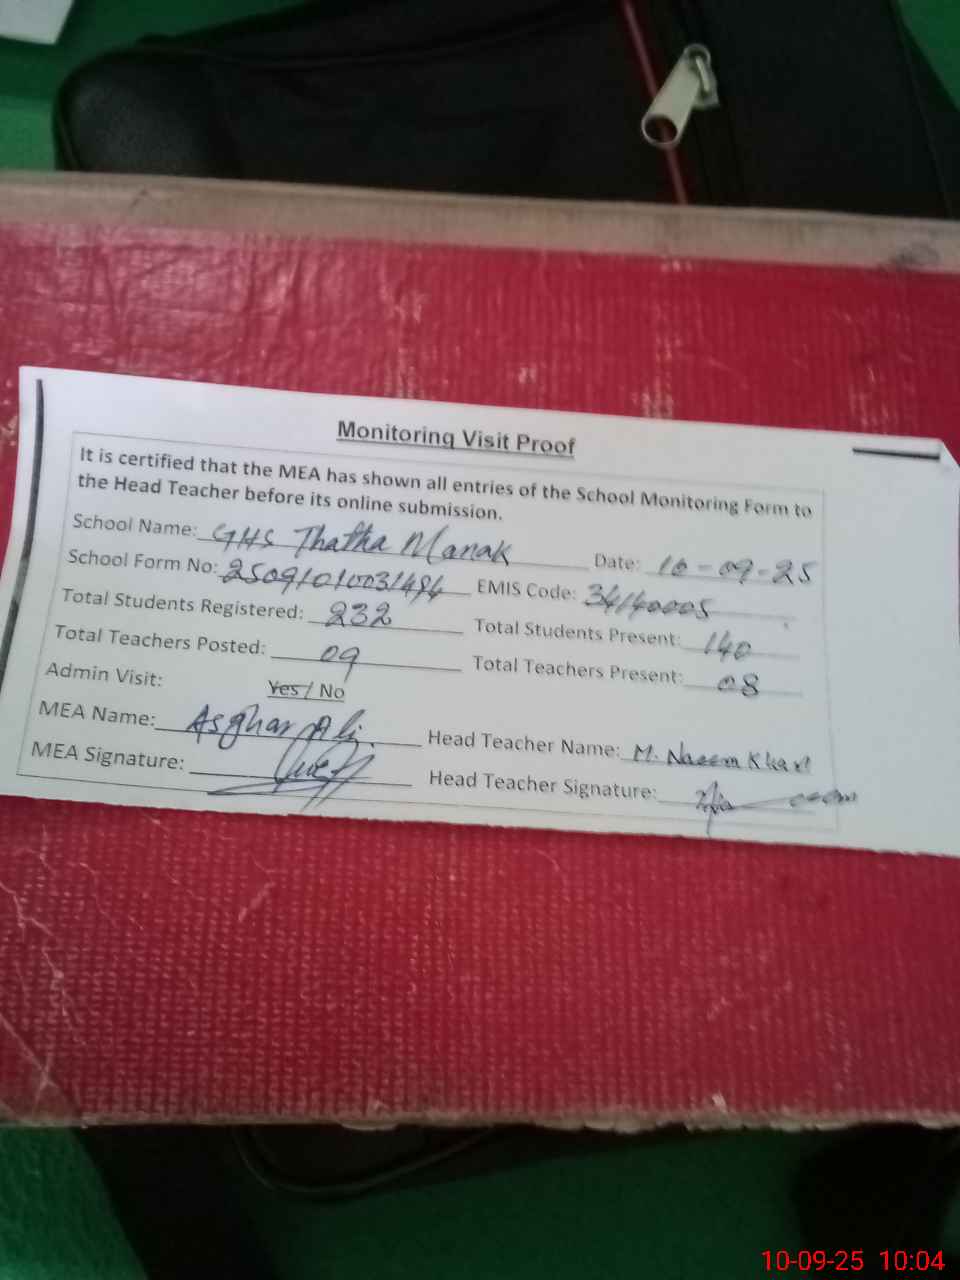 Monitoring Visit Proof
It is certified that the MEA has shown all entries of the School Monitoring Form to
the Head Teacher before its online submission.
School Name: GHS Thatha Manak Date: 10-09-25
School Form No: EMIS Code: 34140005
Total Students Registered: 232 Total Students Present: 140
Total Teachers Posted: 09 Total Teachers Present: 08
Admin Visit: Yes / No
MEA Name: Asghar Ali Head Teacher Name: M. Naeem Khan
MEA Signature: Head Teacher Signature:
10-09-25 10:04